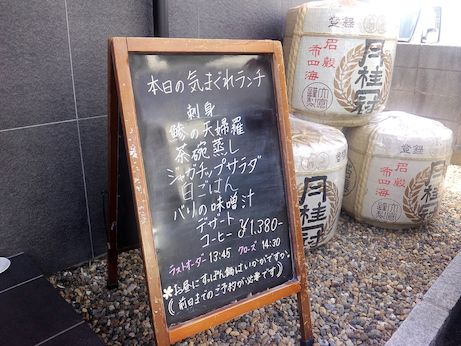 本日の気まぐれランチ
刺身
鯵の天婦羅
茶碗蒸し
ジャガチップサラダ
白ごはん
バリの味噌汁
デザート
コーヒー ¥1,380-
ラストオーダー 13:45 クローズ 14:30
*お昼にすっぽん鍋はいかがですか。
(前日までのご予約が必要です)
登録
月桂冠
名誉
布四海
登録
月桂冠
名誉
布四海
月桂冠